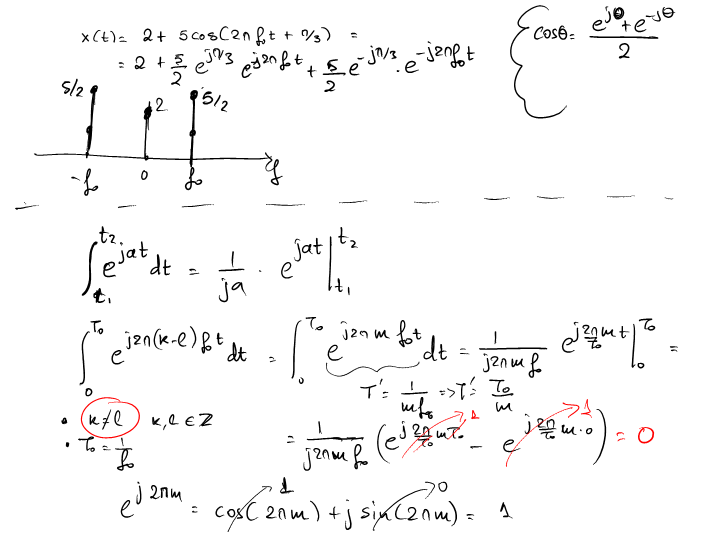 x(t) = 2 + 5cos(2πf₀t + π/3) =
= 2 + 5/2 e^{jπ/3} e^{j2πf₀t} + 5/2 e^{-jπ/3} · e^{-j2πf₀t}
cosθ = (e^{jθ} + e^{-jθ})/2
5/2 2 5/2
-f₀ 0 f₀ f
∫_{t₁}^{t₂} e^{jat} dt = 1/(ja) · e^{jat} |_{t₁}^{t₂}
∫_0^{T₀} e^{j2π(k-l)f₀t} dt = ∫_0^{T₀} e^{j2πm f₀t} dt = 1/(j2πm f₀) e^{j(2π/T₀)mt} |_0^{T₀} =
T' = 1/(mf₀) => T' = T₀/m
• k≠l k,l ∈ Z
• T₀ = 1/f₀
= 1/(j2πm f₀) (e^{j(2π/T₀)mT₀} 1 - e^{j(2π/T₀)m·0} 1) = 0
e^{j2πm} = cos(2πm) 1 + j sin(2πm) 0 = 1